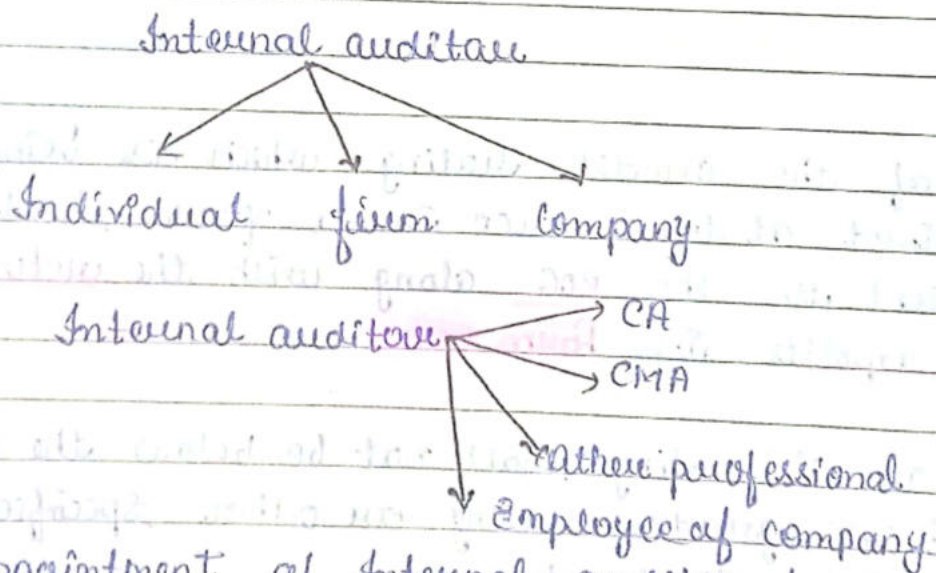 Internal auditor
Individual firm Company
Internal auditor
CA
CMA
other professional
Employee of company
of Internal